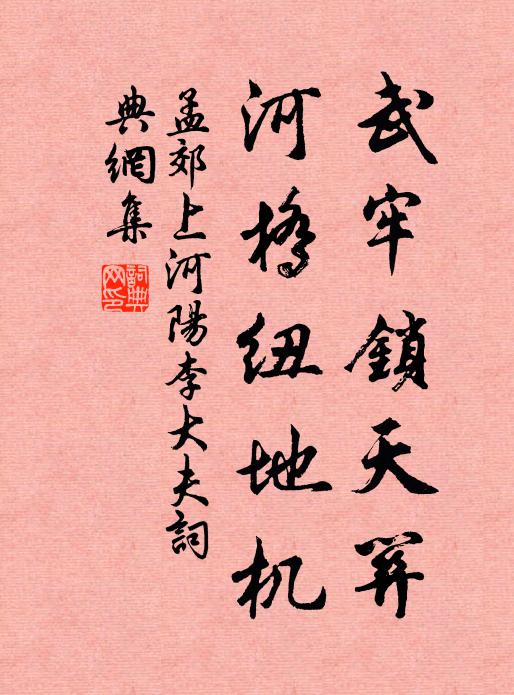 武牢鎖天關
河橋紐地机
孟郊上河陽李大夫詞
典網集
詞典网印